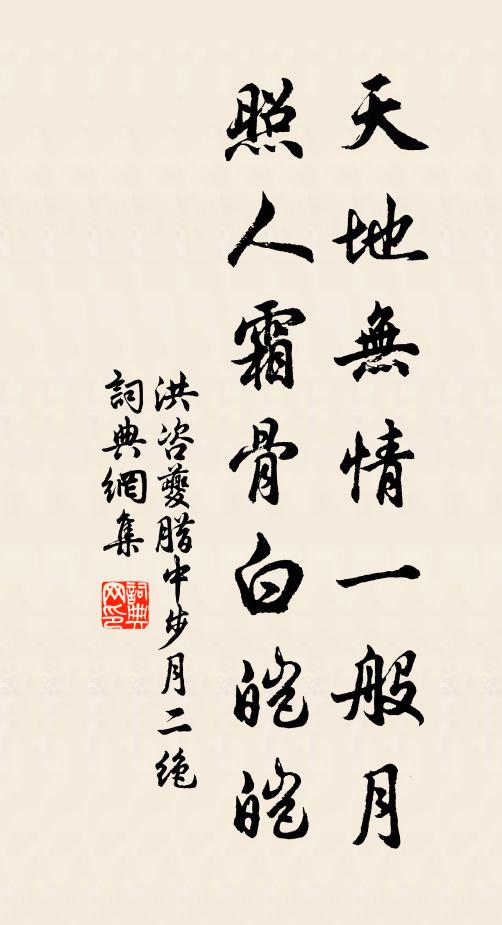 天地無情一般月
照人霜骨白皚皚
洪咨夔腊中步月二絶
詞典網集
詞典网印